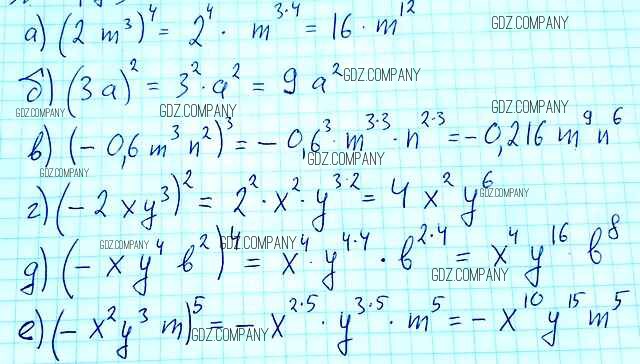 а) (2 m³)⁴ = 2⁴ · m³·⁴ = 16 · m¹² GDZ.COMPANY
б) (3a)² = 3² · a² = 9 a² GDZ.COMPANY
GDZ.COMPANY GDZ.COMPANY GDZ.COMPANY
в) (- 0,6 m³ n²)³ = - 0,6³ · m³·³ · n²·³ = - 0,216 m⁹ n⁶
GDZ.COMPANY GDZ.COMPANY
г) (- 2 x y³)² = 2² · x² · y³·² = 4 x² y⁶ GDZ.COMPANY
GDZ.COMPANY GDZ.COMPANY
д) (- x y⁴ b²)⁴ = x⁴ · y⁴·⁴ · b²·⁴ = x⁴ y¹⁶ b⁸
GDZ.COMPANY
е) (- x² y³ m)⁵ = - x²·⁵ · y³·⁵ · m⁵ = - x¹⁰ y¹⁵ m⁵
GDZ.COMPANY